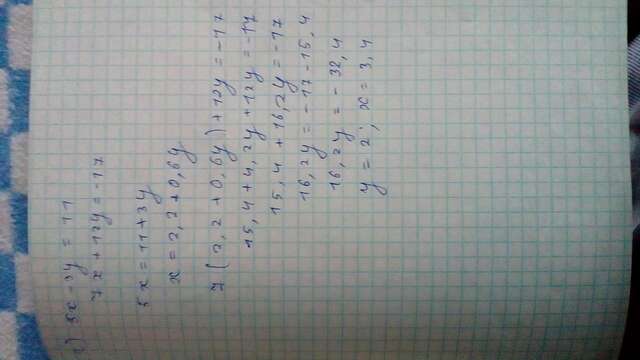 2) 5x - 3y = 11
7x + 12y = -17
5x = 11 + 3y
x = 2,2 + 0,6y
7(2,2 + 0,6y) + 12y = -17
15,4 + 4,2y + 12y = -17
15,4 + 16,2y = -17
16,2y = -17 - 15,4
16,2y = -32,4
y = 2; x = 3,4